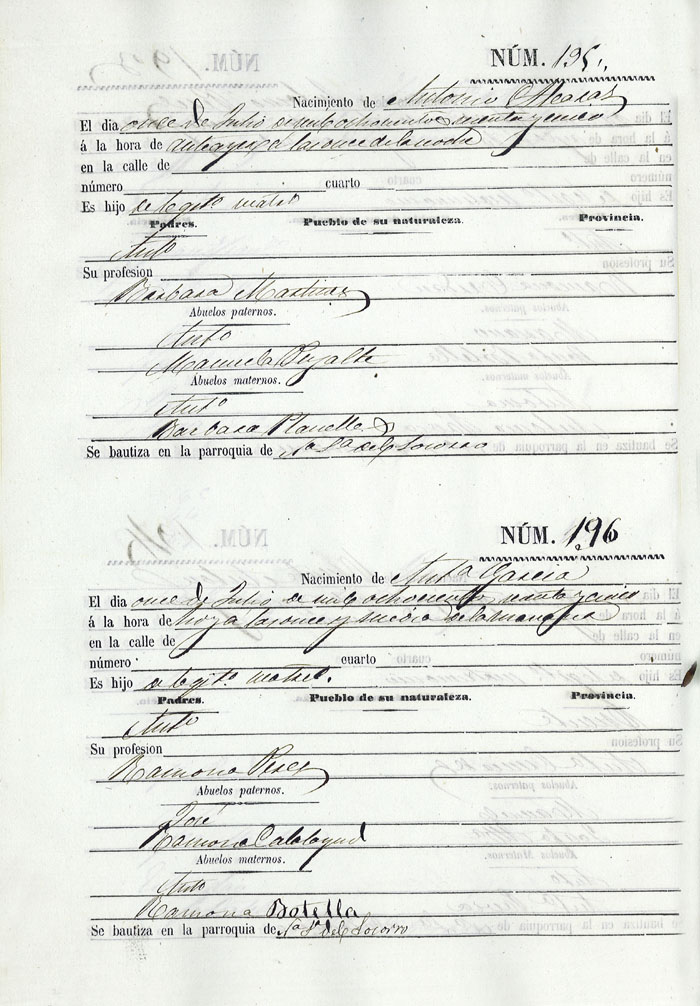 NÚM. 195.
Nacimiento de Antonio Alcaraz
El dia once de Julio de mil ochocientos sesenta y cinco
á la hora de antes ayer a las once de la noche
en la calle de
número cuarto
Es hijo de legito matro
Padres. Pueblo de su naturaleza. Provincia.
Anto
Su profesion
Barbara Martinez
Abuelos paternos.
Anto
Manuela Pujalte
Abuelos maternos.
Anto
Barbara Planelles
Se bautiza en la parroquia de Na Sa del Socorro
NÚM. 196
Nacimiento de Anta Garcia
El dia once de Julio de mil ochocientos sesenta y cinco
á la hora de hoy a las once y media de la mañana
en la calle de
número cuarto
Es hijo de legito matro.
Padres. Pueblo de su naturaleza. Provincia.
Anto
Su profesion
Ramona Perez
Abuelos paternos.
José
Ramona Calatayud
Abuelos maternos.
Anto
Ramona Botella
Se bautiza en la parroquia de Na Sa del Socorro